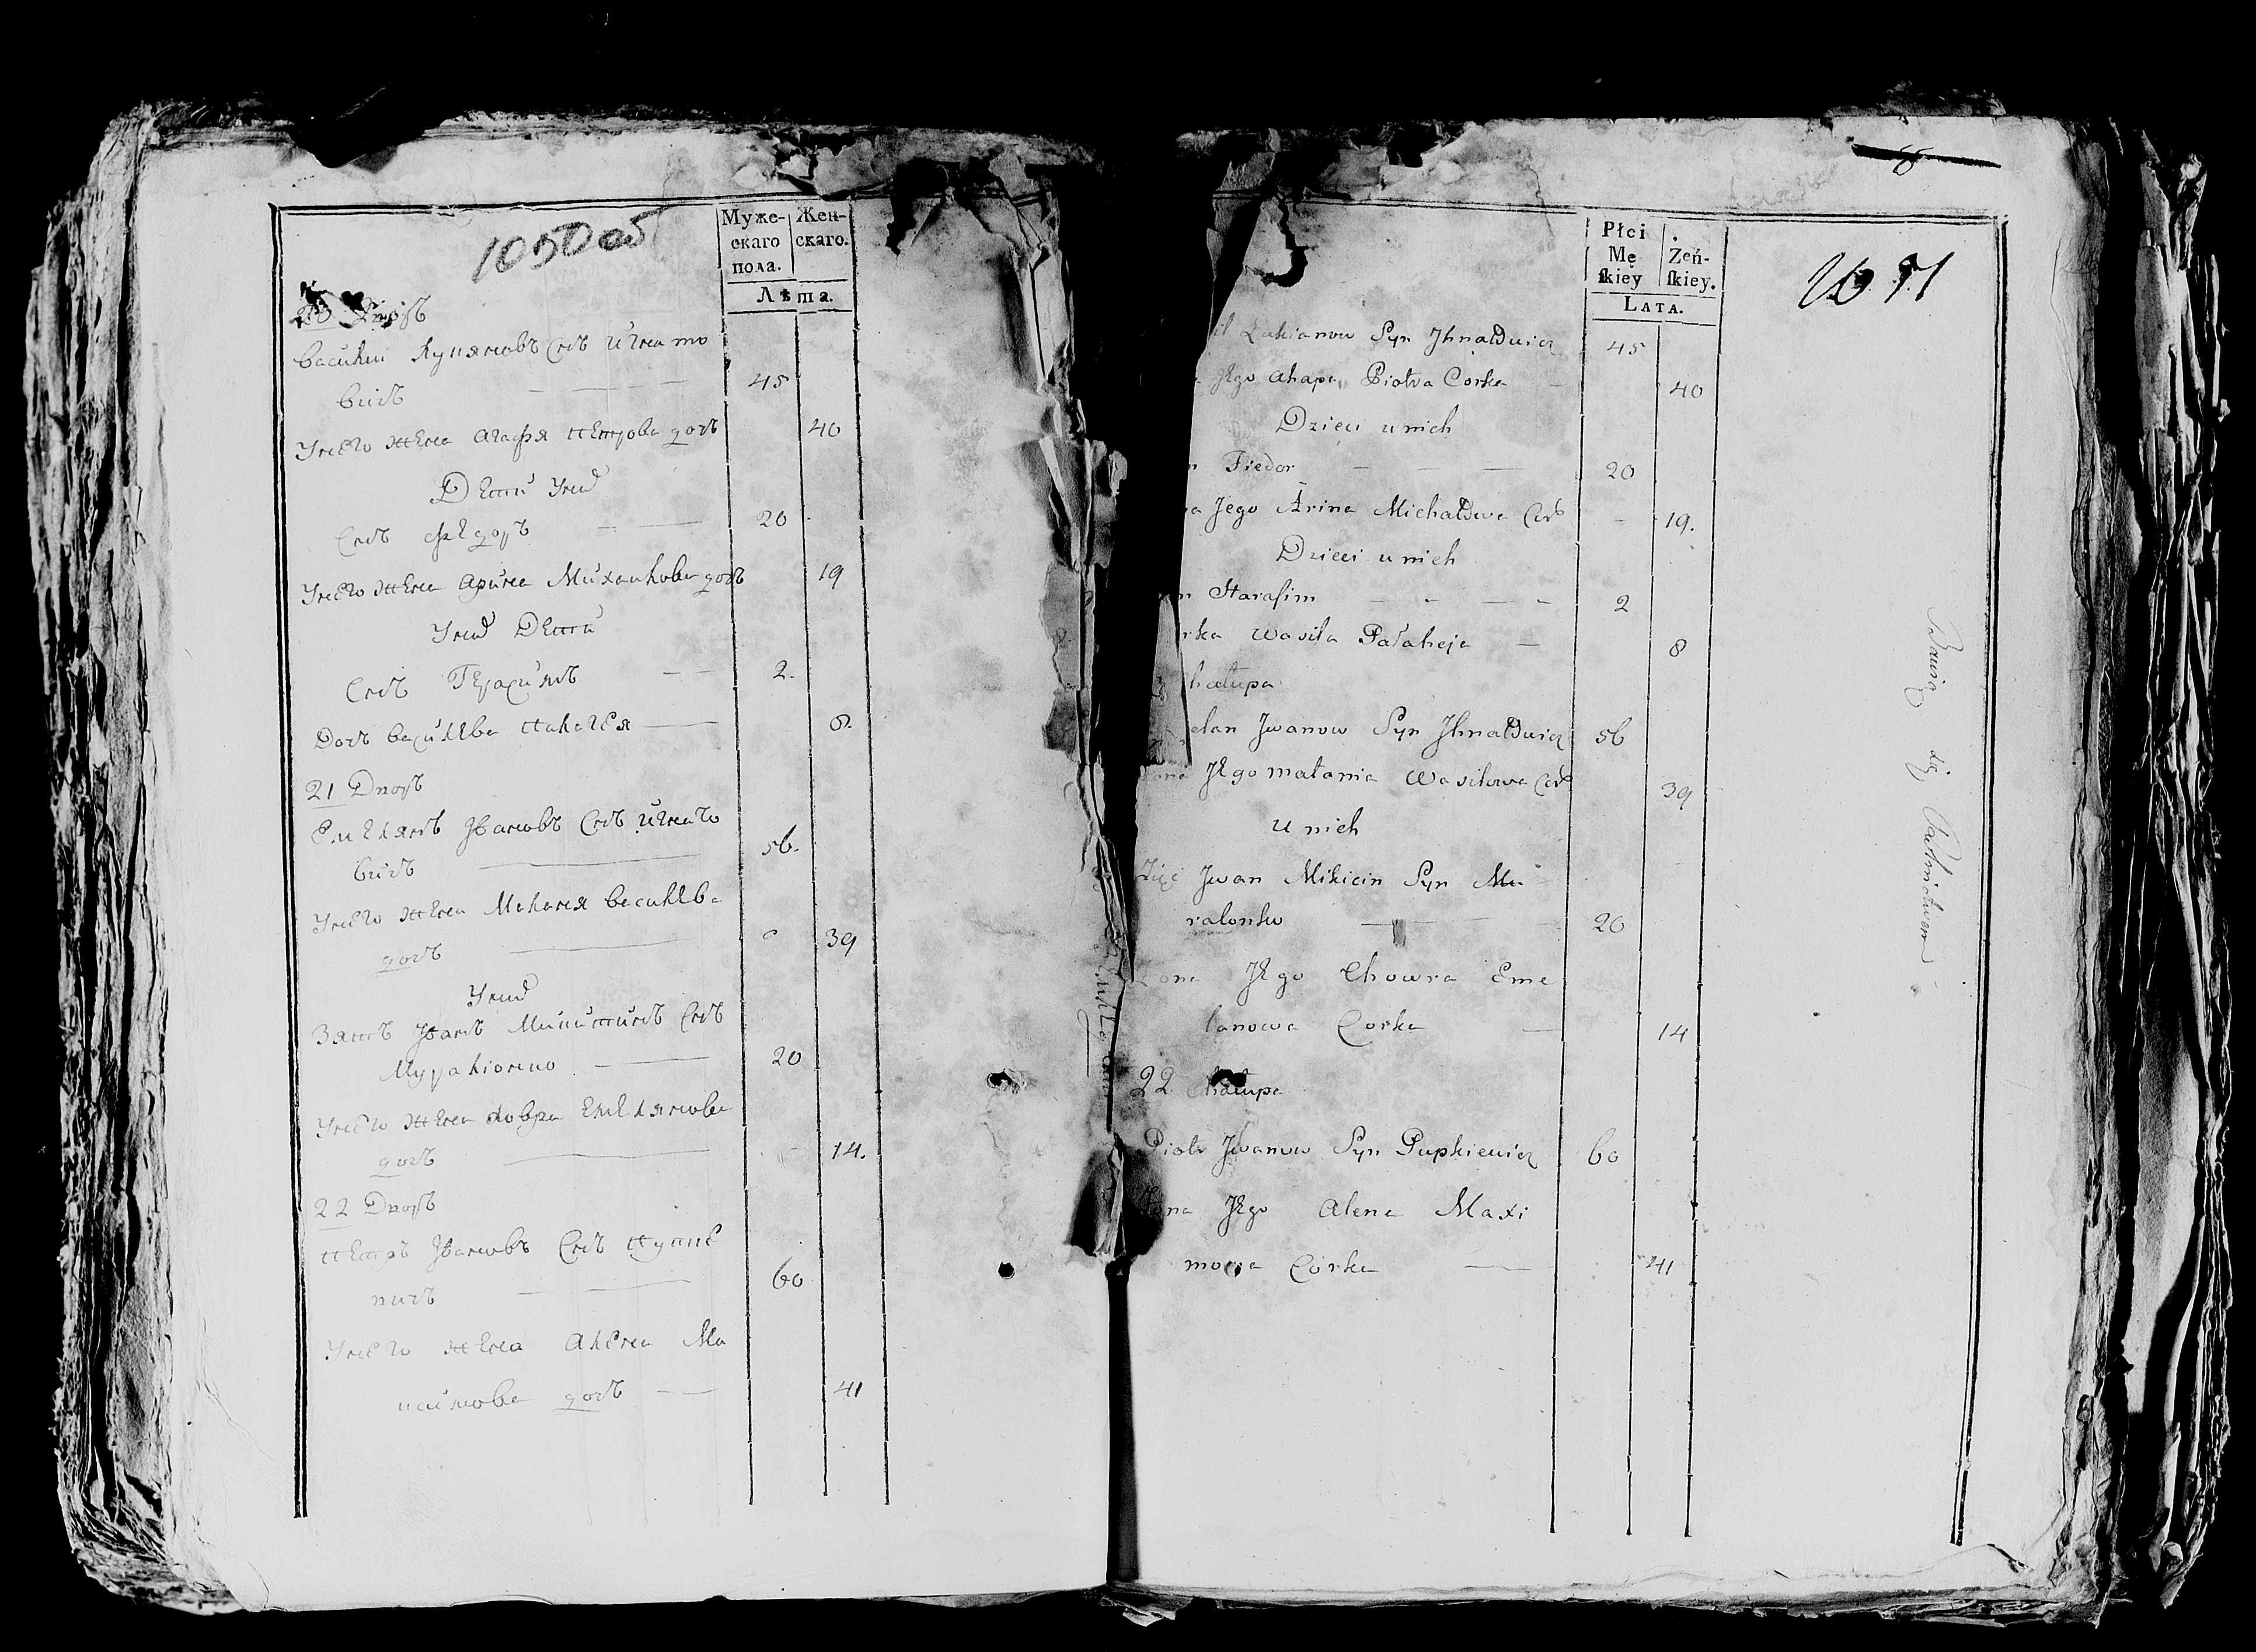 1050 об
Муже-
скаго
пола.
Жен-
скаго.
Лѣта.
20 Дворъ
Василий Лукяновъ Снъ Игнато
вичъ 45
У него жена Агафя Петрова дочъ 40
Дети у них
Снъ Федоръ 20
У него жена Арина Михайлова дочъ 19
У них Дети
Снъ Герасимъ 2.
Дочъ Василева Палагея 8.
21 Дворъ
Емелянъ Ивановъ Снъ Игнато
вичъ 56.
У него жена Маланя Василева
дочъ 39
У них
Зять Иванъ Микитинъ Снъ
Муралионко 20
У него жена Ховра Емелянова
дочъ 14.
22 Дворъ
Петръ Ивановъ Снъ Пупке
вичъ 60
У него жена Алена Ма
ксимова дочъ 41
8
1051
Płci
Mę
skiey
Żeń-
skiey.
LATA.
il Łukianow Syn Jhnatowicz 45
Jego Ahapa Piotra Corka 40
Dzieci u nich
n Fiedor 20
na Jego Arina Michałowa Cor 19.
Dzieci u nich
n Harasim 2
rka Wasila Pałaheja 8
hałupa
elan Jwanow Syn Jhnatowicz 56
ona Jego Małania Wasilowa Cor 39
U nich
Zięć Jwan Mikicin Syn Mu
ralonko 20
Zona Jego Chowra Eme
lanowa Corka 14
22 Chałupa
Piotr Jwanow Syn Pupkiewicz 60
Zona Jego Alena Maxi
mowa Corka 41